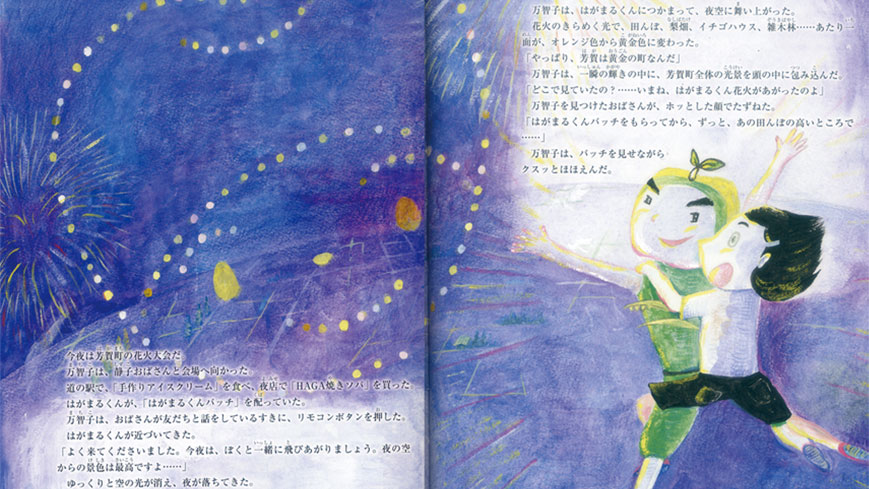 今夜は芳賀町の花火大会だ
万智子は、静子おばさんと会場へ向かった
道の駅で、「手作りアイスクリーム」を食べ、夜店で「HAGA焼きソバ」を買った
はがまるくんが、「はがまるくんバッチ」を配っていた。
万智子は、おばさんが友だちと話をしているすきに、リモコンボタンを押した。
はがまるくんが近づいてきた。
「よく来てくださいました。今夜は、ぼくと一緒に飛びあがりましょう。夜の空
からの景色は最高ですよ……」
ゆっくりと空の光が消え、夜が落ちてきた。
万智子は、はがまるくんにつかまって、夜空に舞い上がった。
花火のきらめく光で、田んぼ、梨畑、イチゴハウス、雑木林……あたり一
面が、オレンジ色から黄金色に変わった。
「やっぱり、芳賀は黄金の町なんだ」
万智子は、一瞬の輝きの中に、芳賀町全体の光景を頭の中に包み込んだ。
「どこで見ていたの？……いまね、はがまるくん花火があがったのよ」
万智子を見つけたおばさんが、ホッとした顔でたずねた。
「はがまるくんバッチをもらってから、ずっと、あの田んぼの高いところで
……」
万智子は、バッチを見せながら
クスッとほほえんだ。